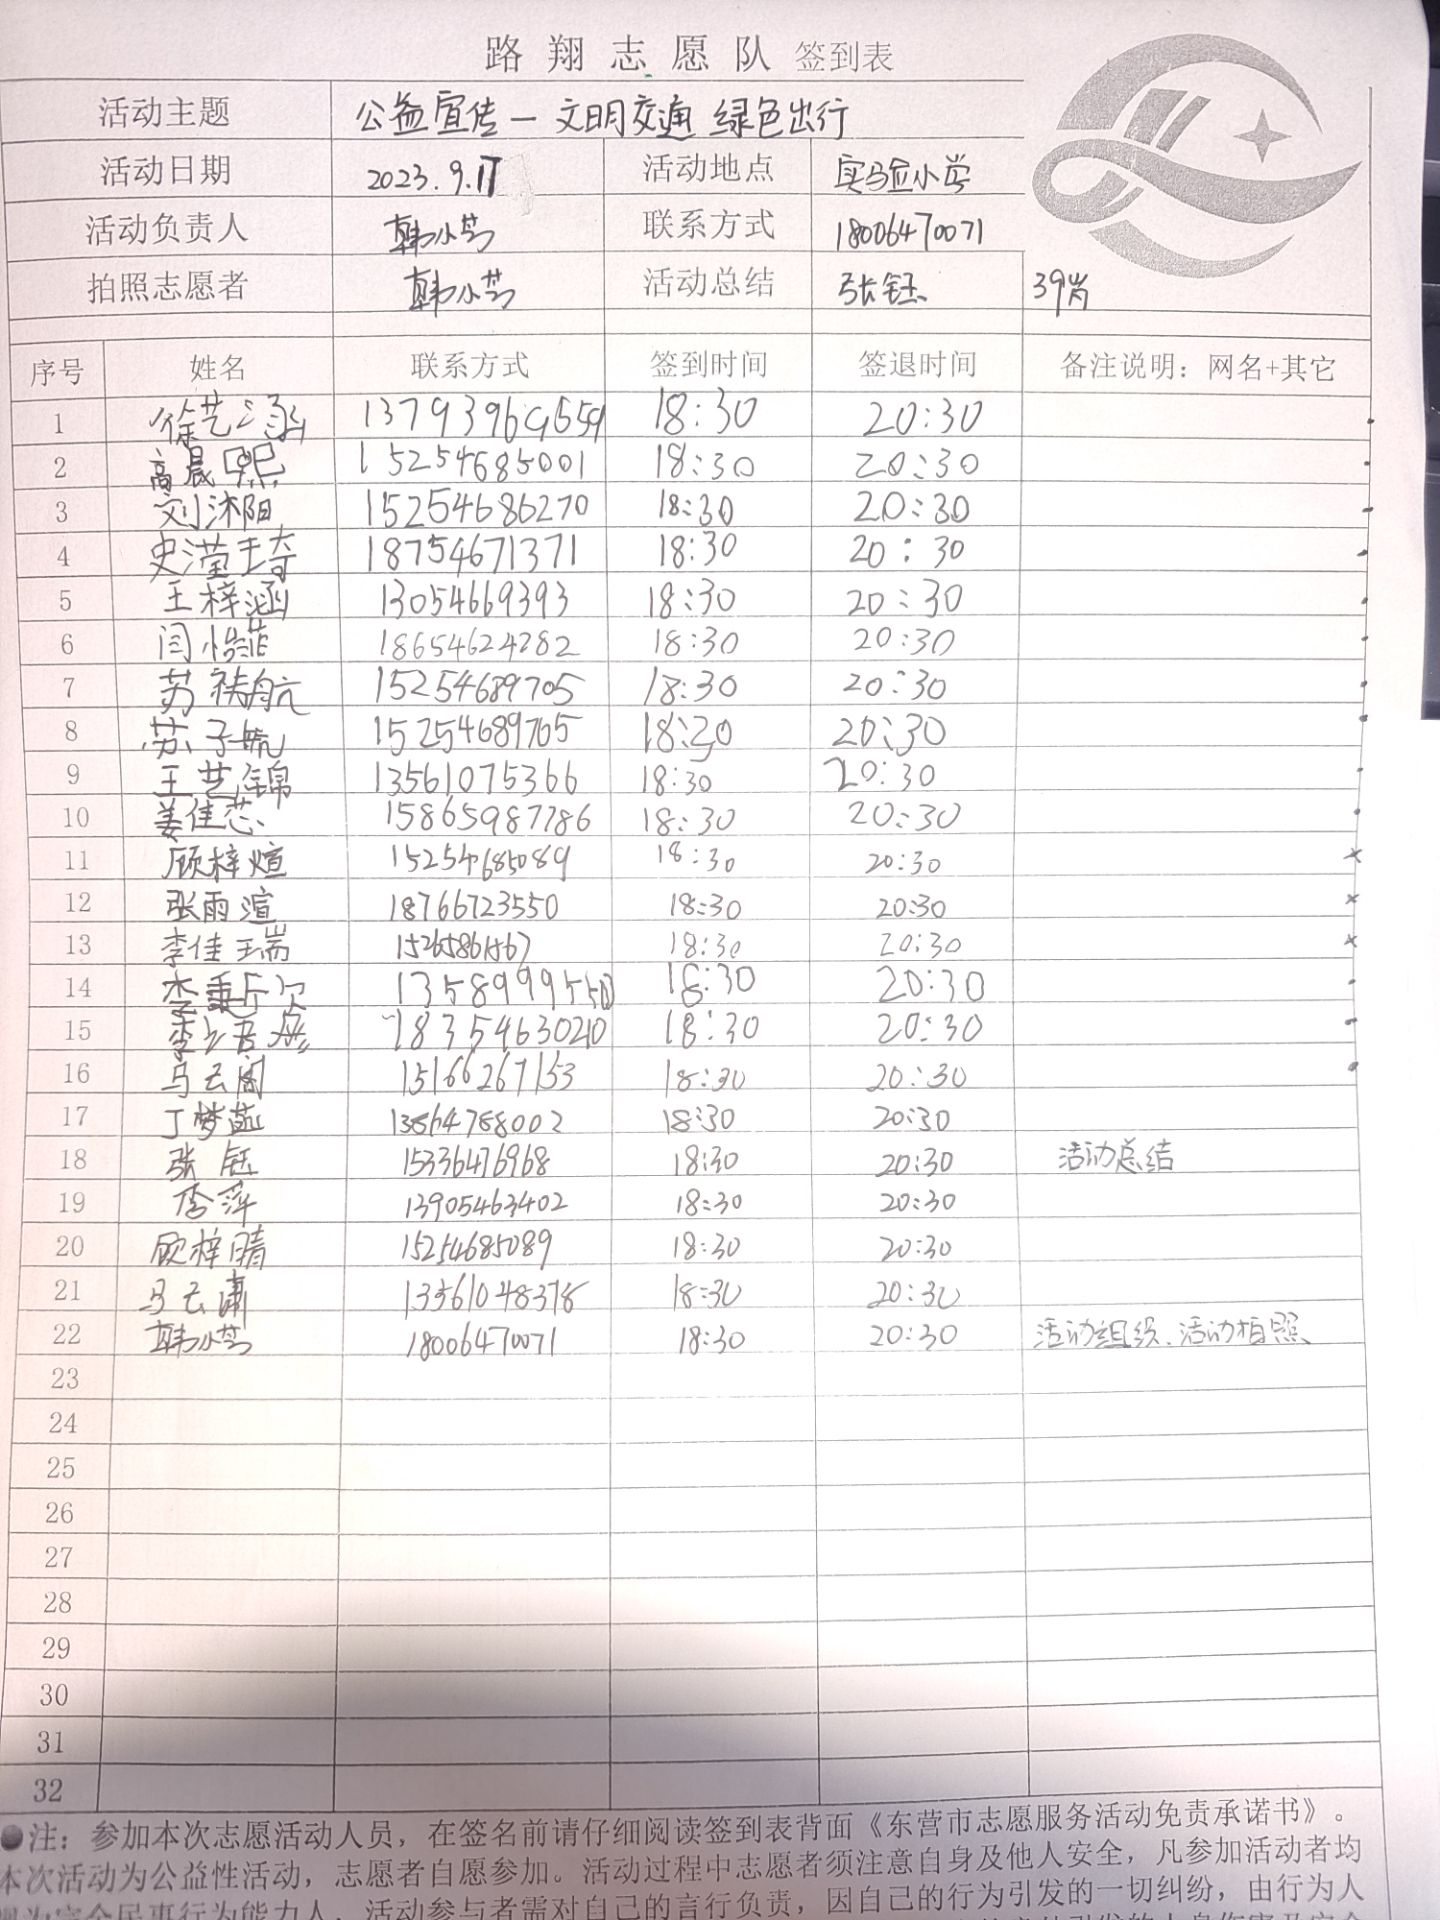 路翔志愿队 签到表
活动主题 公益宣传—文明交通 绿色出行
活动日期 2023.9.17 活动地点 实验小学
活动负责人 韩小芸 联系方式 18006470071
拍照志愿者 韩小芸 活动总结 张钰 39岁
序号 姓名 联系方式 签到时间 签退时间 备注说明：网名+其它
1 徐艺涵 13793969659 18:30 20:30
2 高晨熙 15254685001 18:30 20:30
3 刘沐阳 15254686270 18:30 20:30
4 史滢琦 18754671371 18:30 20:30
5 王梓涵 13054669393 18:30 20:30
6 闫 菲 18654624282 18:30 20:30
7 苏 航 15254689705 18:30 20:30
8 苏子毓 15254689705 18:30 20:30
9 王艺锦 13561075366 18:30 20:30
10 姜佳芯 15865987786 18:30 20:30
11 顾梓煊 15254685089 18:30 20:30
12 张雨渲 18766723550 18:30 20:30
13 李佳瑞 18:30 20:30
14 李 18:30 20:30
15 李 18:30 20:30
16 马云阁 15166267153 18:30 20:30
17 丁梦 13864788002 18:30 20:30
18 张钰 15336476968 18:30 20:30 活动总结
19 李萍 13905463402 18:30 20:30
20 顾梓晴 15254685089 18:30 20:30
21 马云潇 13361048378 18:30 20:30
22 韩小芸 18006470071 18:30 20:30 活动组织、活动拍照
23
24
25
26
27
28
29
30
31
32
●注：参加本次志愿活动人员，在签名前请仔细阅读签到表背面《东营市志愿服务活动免责承诺书》。
本次活动为公益性活动，志愿者自愿参加。活动过程中志愿者须注意自身及他人安全，凡参加活动者均
为完全民事行为能力人，活动参与者需对自己的言行负责，因自己的行为引发的一切纠纷，由行为人